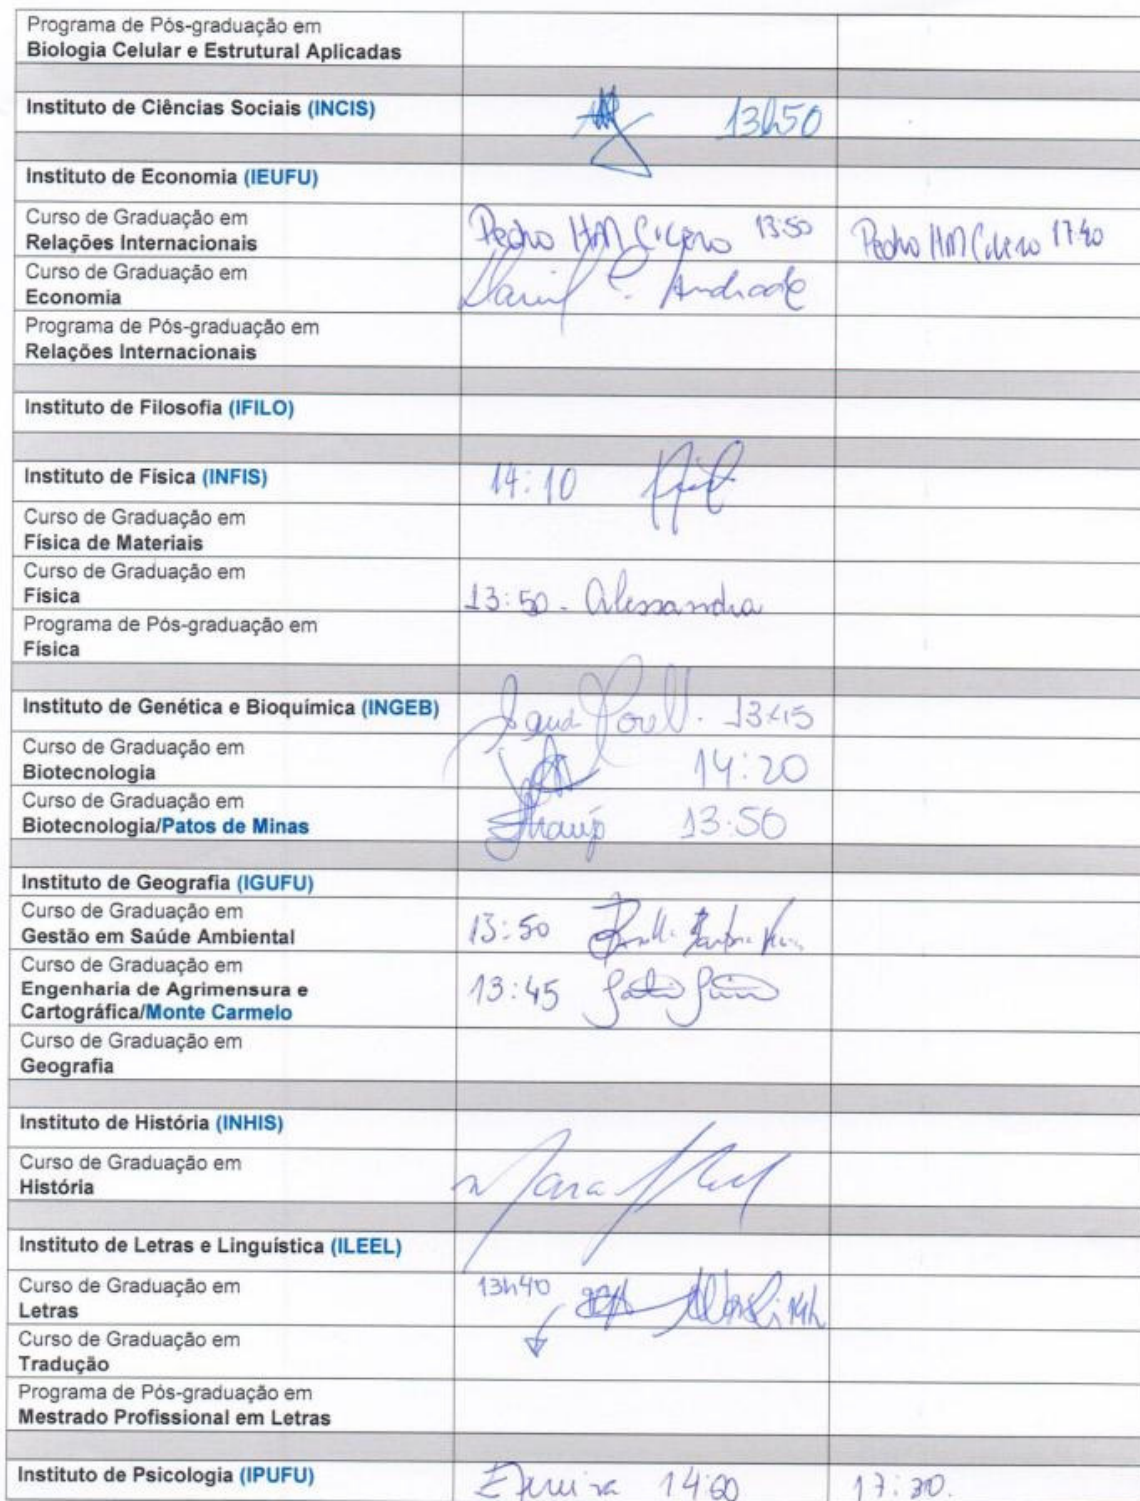 Programa de Pós-graduação em
Biologia Celular e Estrutural Aplicadas
Instituto de Ciências Sociais (INCIS) 13h50
Instituto de Economia (IEUFU)
Curso de Graduação em
Relações Internacionais Pedro HM Cícero 13:50 Pedro HM Cícero 17:40
Curso de Graduação em
Economia Andrade
Programa de Pós-graduação em
Relações Internacionais
Instituto de Filosofia (IFILO)
Instituto de Física (INFIS) 14:10
Curso de Graduação em
Física de Materiais
Curso de Graduação em
Física 13:50 - Alessandra
Programa de Pós-graduação em
Física
Instituto de Genética e Bioquímica (INGEB)
Curso de Graduação em
Biotecnologia 14:20
Curso de Graduação em
Biotecnologia/Patos de Minas 13:50
Instituto de Geografia (IGUFU)
Curso de Graduação em
Gestão em Saúde Ambiental 13:50
Curso de Graduação em
Engenharia de Agrimensura e 13:45
Cartográfica/Monte Carmelo
Curso de Graduação em
Geografia
Instituto de História (INHIS)
Curso de Graduação em
História
Instituto de Letras e Linguística (ILEEL)
Curso de Graduação em 13h40
Letras 14h
Curso de Graduação em
Tradução
Programa de Pós-graduação em
Mestrado Profissional em Letras
Instituto de Psicologia (IPUFU) 17:30.